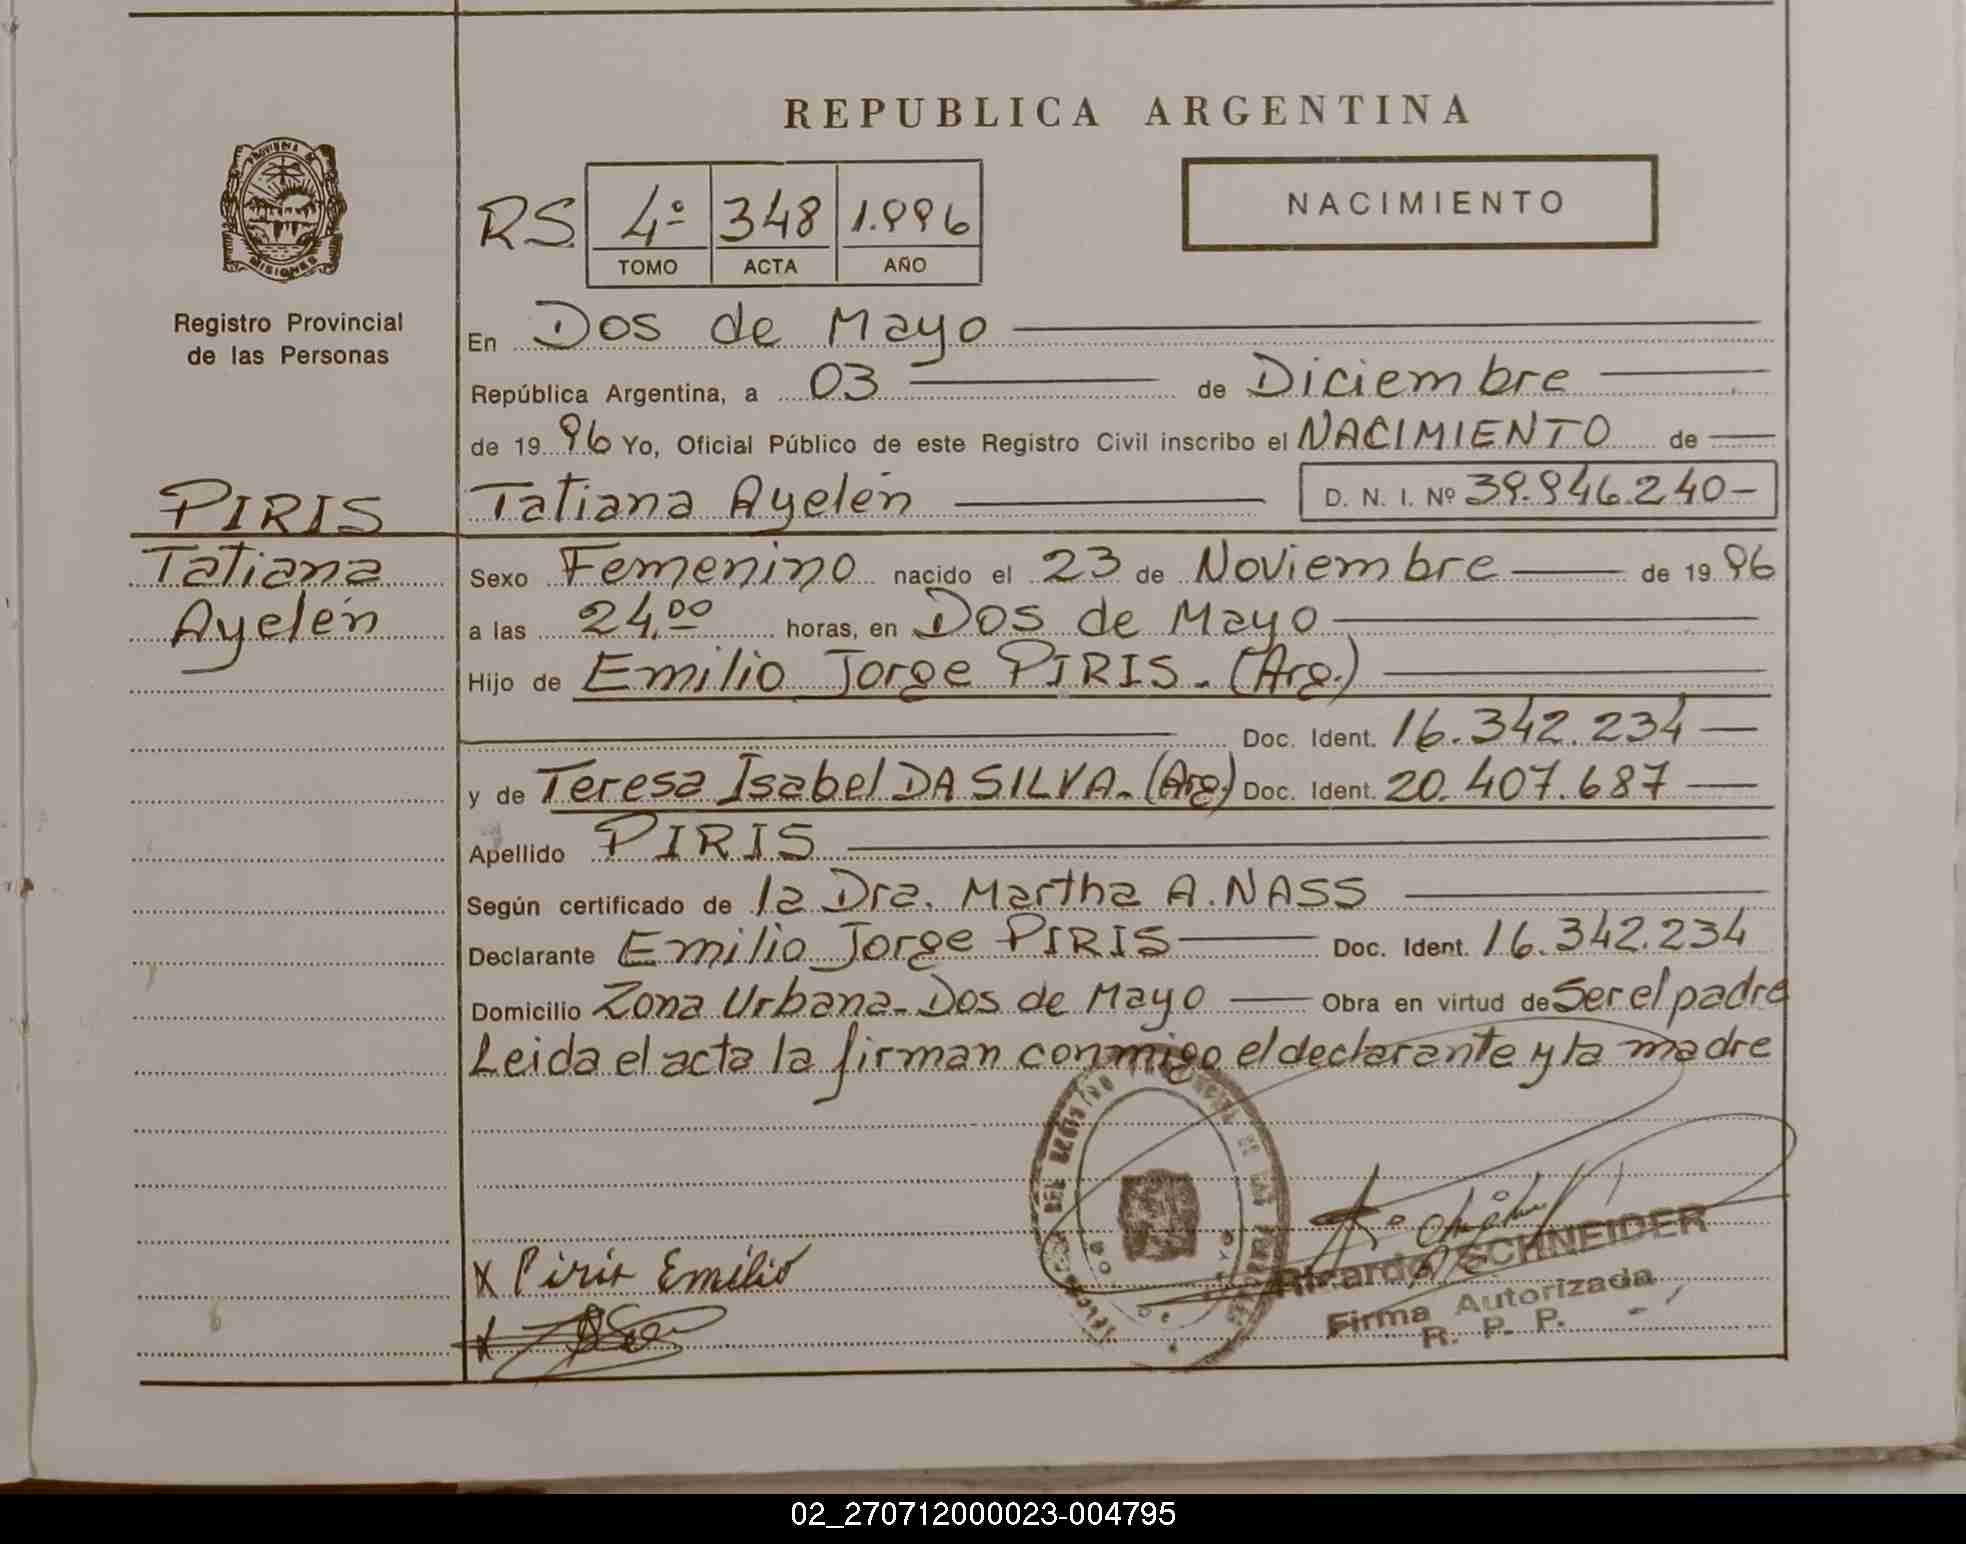 REPUBLICA ARGENTINA
PROVINCIA DE
MISIONES
Registro Provincial
de las Personas
RS. 4º 348 1.996
TOMO ACTA AÑO
NACIMIENTO
En Dos de Mayo
República Argentina, a 03 de Diciembre
de 1996 Yo, Oficial Público de este Registro Civil inscribo el NACIMIENTO de
PIRIS
Tatiana
Ayelén
Tatiana Ayelén D. N. I. Nº 39.946.240-
Sexo Femenino nacido el 23 de Noviembre de 1996
a las 24,00 horas, en Dos de Mayo
Hijo de Emilio Jorge PIRIS. (Arg.)
Doc. Ident. 16.342.234
y de Teresa Isabel DA SILVA. (Arg) Doc. Ident. 20.407.687
Apellido PIRIS
Según certificado de la Dra. Martha A. NASS
Declarante Emilio Jorge PIRIS Doc. Ident. 16.342.234
Domicilio Zona Urbana-Dos de Mayo Obra en virtud de Ser el padre
Leida el acta la firman conmigo el declarante y la madre
X Piris Emilio
X
Ricardo SCHNEIDER
Firma Autorizada
R. P. P.
02_270712000023-004795